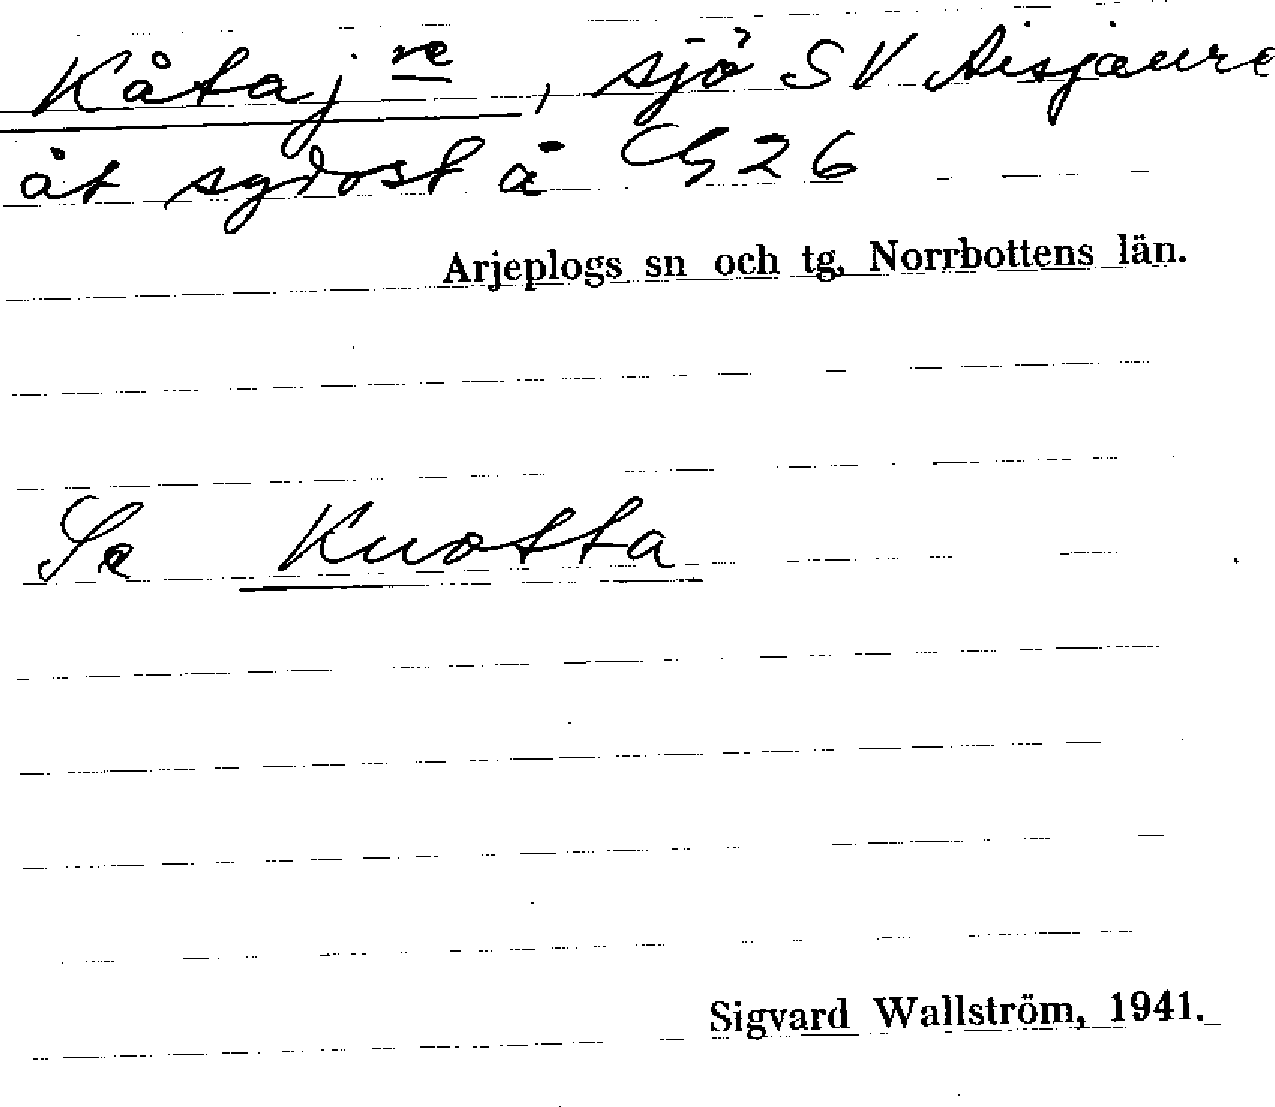 Kåtajre, sjö SV Aisjaure
åt sydost å G 26
Arjeplogs sn och tg, Norrbottens län.
Se Kuotta
Sigvard Wallström, 1941.